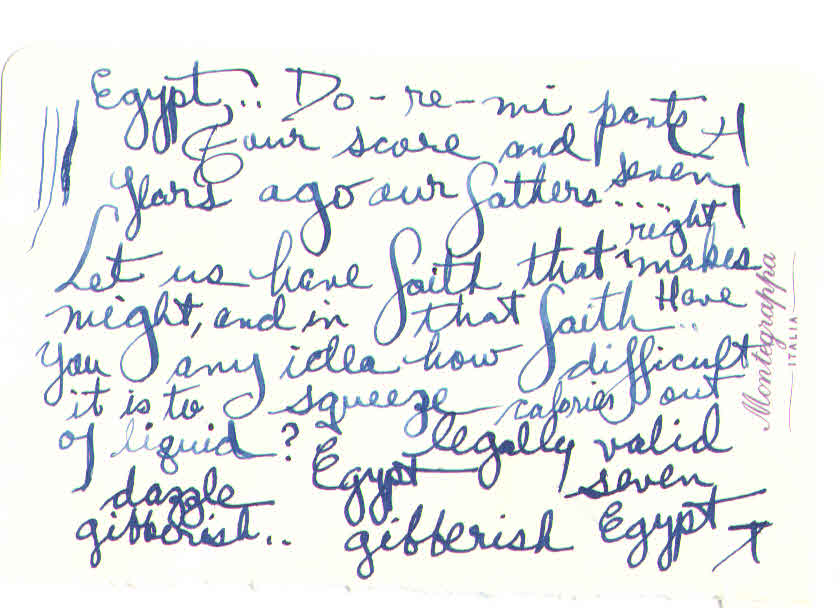 Egypt... Do-re-mi pants
Four score and
seven
years ago our fathers...
right
Let us have faith that makes
might, and in that faith.. Have
you any idea how difficult
it is to squeeze calories out
of liquid? legally valid
Egypt seven
dazzle
gibberish.. gibberish Egypt
Montegrappa
ITALIA